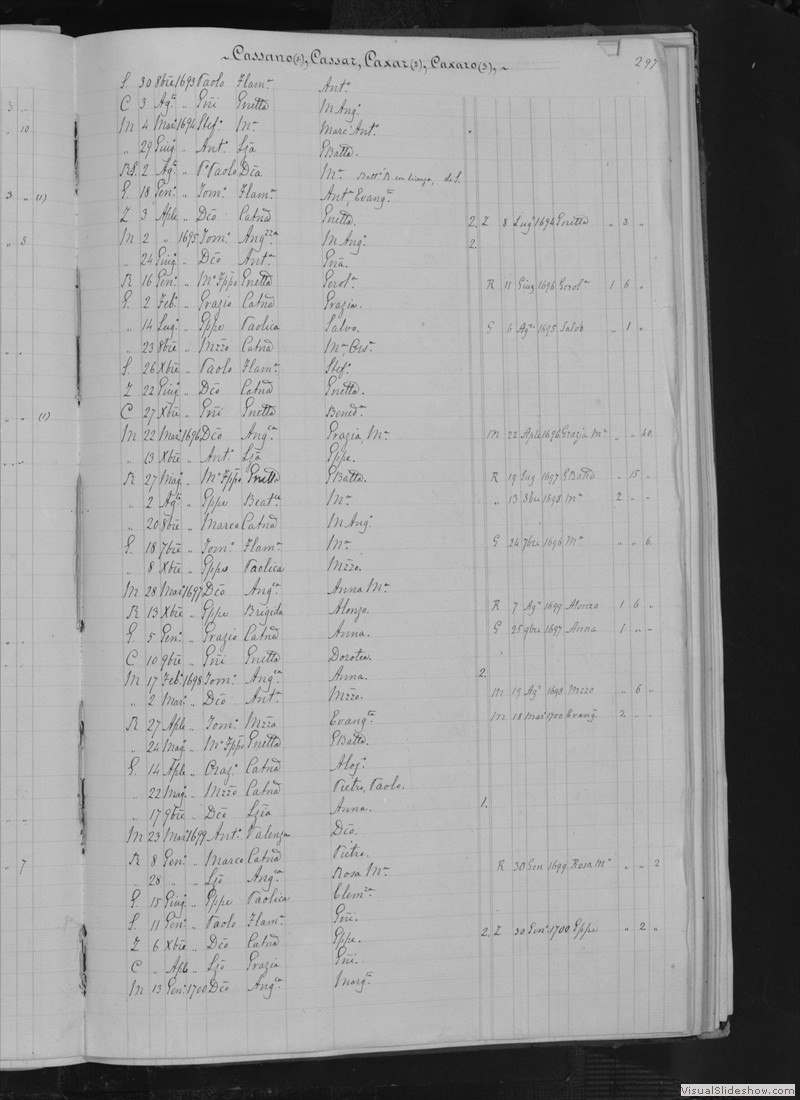 ~Cassano(6), Cassar, Caxar(2), Caxaro(3),~ 297
S. 30 8bre 1693 Paolo Flam.a Ant.o
C 3 Ag.to „ Gñi Gnetta M Ang.o
M 4 Mar.o 1694 Stef.o M.a Marc'Ant.o
„ 29 Giug.o „ Ant.o Lza GBatta.
RS. 2 Ag.to „ Paolo Dca M.a
G. 18 Gen.o „ Tom.o Flam.a Ant.a Evang.ta
Z 3 Aple „ Dco Catna Gnetta. 2. Z 8 Lug.o 1694 Gnetta „ 3 „
M 2 „ 1695 Tom.o Ang.ca M Ang.o 2.
„ 24 Giug.o „ Dco Ant.a Gna.
R 16 Gen.o „ M.o Fppo Gnetta Gerol.a R 11 Giug 1696 Gerol.a 1 6 „
G. 2 Feb.o „ Grazio Catna Grazia.
„ 14 Lug.o „ Gppe Paolica Salvo. G 6 Ag.o 1695 Salvo „ 1 „
„ 23 8bre „ Mzzo Catna M.a Ors.a
S. 26 Xbre „ Paolo Flam.a Stef.o
Z 22 Giug.o „ Dco Catna Gnetta.
C 27 Xbre „ Gñi Gnetta Bened.a
M 22 Mar.o 1696 Dco Ang.ca Grazia, M.a M 22 Aple 1696 Grazia M.a „ „ 20
„ 13 Xbre „ Ant.o Lza Gppe.
R 27 Mag.o „ M.o Fppo Gnetta GBatta. R 19 Lug 1697 GBatta „ 15 „
„ 2 Ag.to „ Gppe Beat.ce M.a „ 13 8bre 1698 M.a 2 „ „
„ 20 8bre „ Marco Catna M Ang.o
G. 18 7bre „ Tom.o Flam.a M.a G 24 7bre 1696 M.a „ „ 6
„ 8 Xbre „ Gppe Paolica Mzzo.
M 28 Mar.o 1697 Dco Ang.ca Anna M.a
R 13 Xbre „ Gppe Brigida Alonzo. R 7 Ag.o 1699 Alonzo 1 6 „
G. 5 Gen.o „ Grazio Catna Anna. G 25 9bre 1697 Anna 1 „ „
C 10 9bre „ Gñi Gnetta Dorotea.
M 17 Feb.o 1698 Tom.o Ang.ca Anna. 2.
„ 2 Mar.o „ Dco Ant.a Mzzo. M 19 Ag.o 1698 Mzzo „ 6 „
R 27 Aple „ Tom.o Mzza Evang.ta M 18 Mar 1700 Evang.a 2 „ „
„ 24 Mag.o „ M.o Fppo Gnetta GBatta.
G. 14 Aple „ Oraz.o Catna Aloj.o
„ 22 Mag.o „ Mzzo Catna Pietro, Paolo.
„ 17 9bre „ Dco Lzia Anna. 1.
M 23 Mar.o 1699 Ant.o Valenza Dco.
R 8 Gen.o „ Marco Catna Pietro.
„ 28 „ „ Lzo Ang.ca Rosa M.a R 30 Gen 1699 Rosa M.a „ „ 2
G. 15 Giug.o „ Gppe Paolica Clem.za
S. 11 Gen.o „ Paolo Flam.a Gñi.
Z 6 Xbre „ Dco Catna Gppe. 2. Z 30 Gen.o 1700 Gppe „ 2 „
C „ Aple „ Lzo Grazia Gñi.
M 13 Gen.o 1700 Dco Ang.ca Marg.ta
3
„ 10
3 „ (1)
„ 3
„ „ (1)
„ 7
VisualSlideshow.com